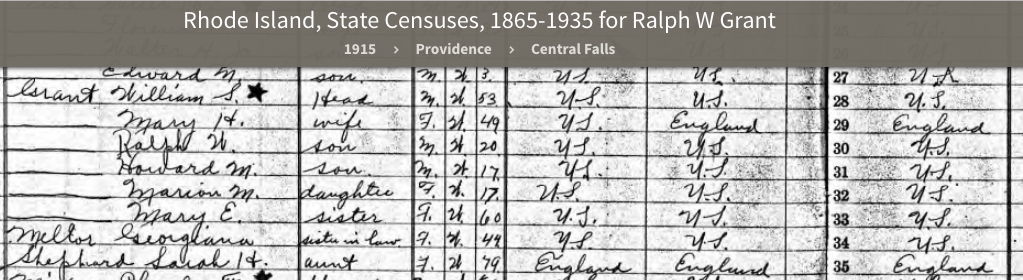 Rhode Island, State Censuses, 1865-1935 for Ralph W Grant
1915 > Providence > Central Falls
Edward M. son. M. W. 3. U.S. U.S. 27
Grant William S. ★ Head M. W. 53 U.S. U.S. 28 U.S.
Mary H. wife F. W. 49 U.S. England 29 England
Ralph W. son M. W. 20 U.S. U.S. 30 U.S.
Howard M. son. M. W. 17 U.S. U.S. 31 U.S.
Marion M. daughter F. W. 17. U.S. U.S. 32 U.S.
Mary E. sister F. W. 60 U.S. U.S. 33 U.S.
Georgiana sister in law F. W. 44 U.S. U.S. 34 U.S.
Shephard Sarah H. aunt F. W. 79 England England 35 England